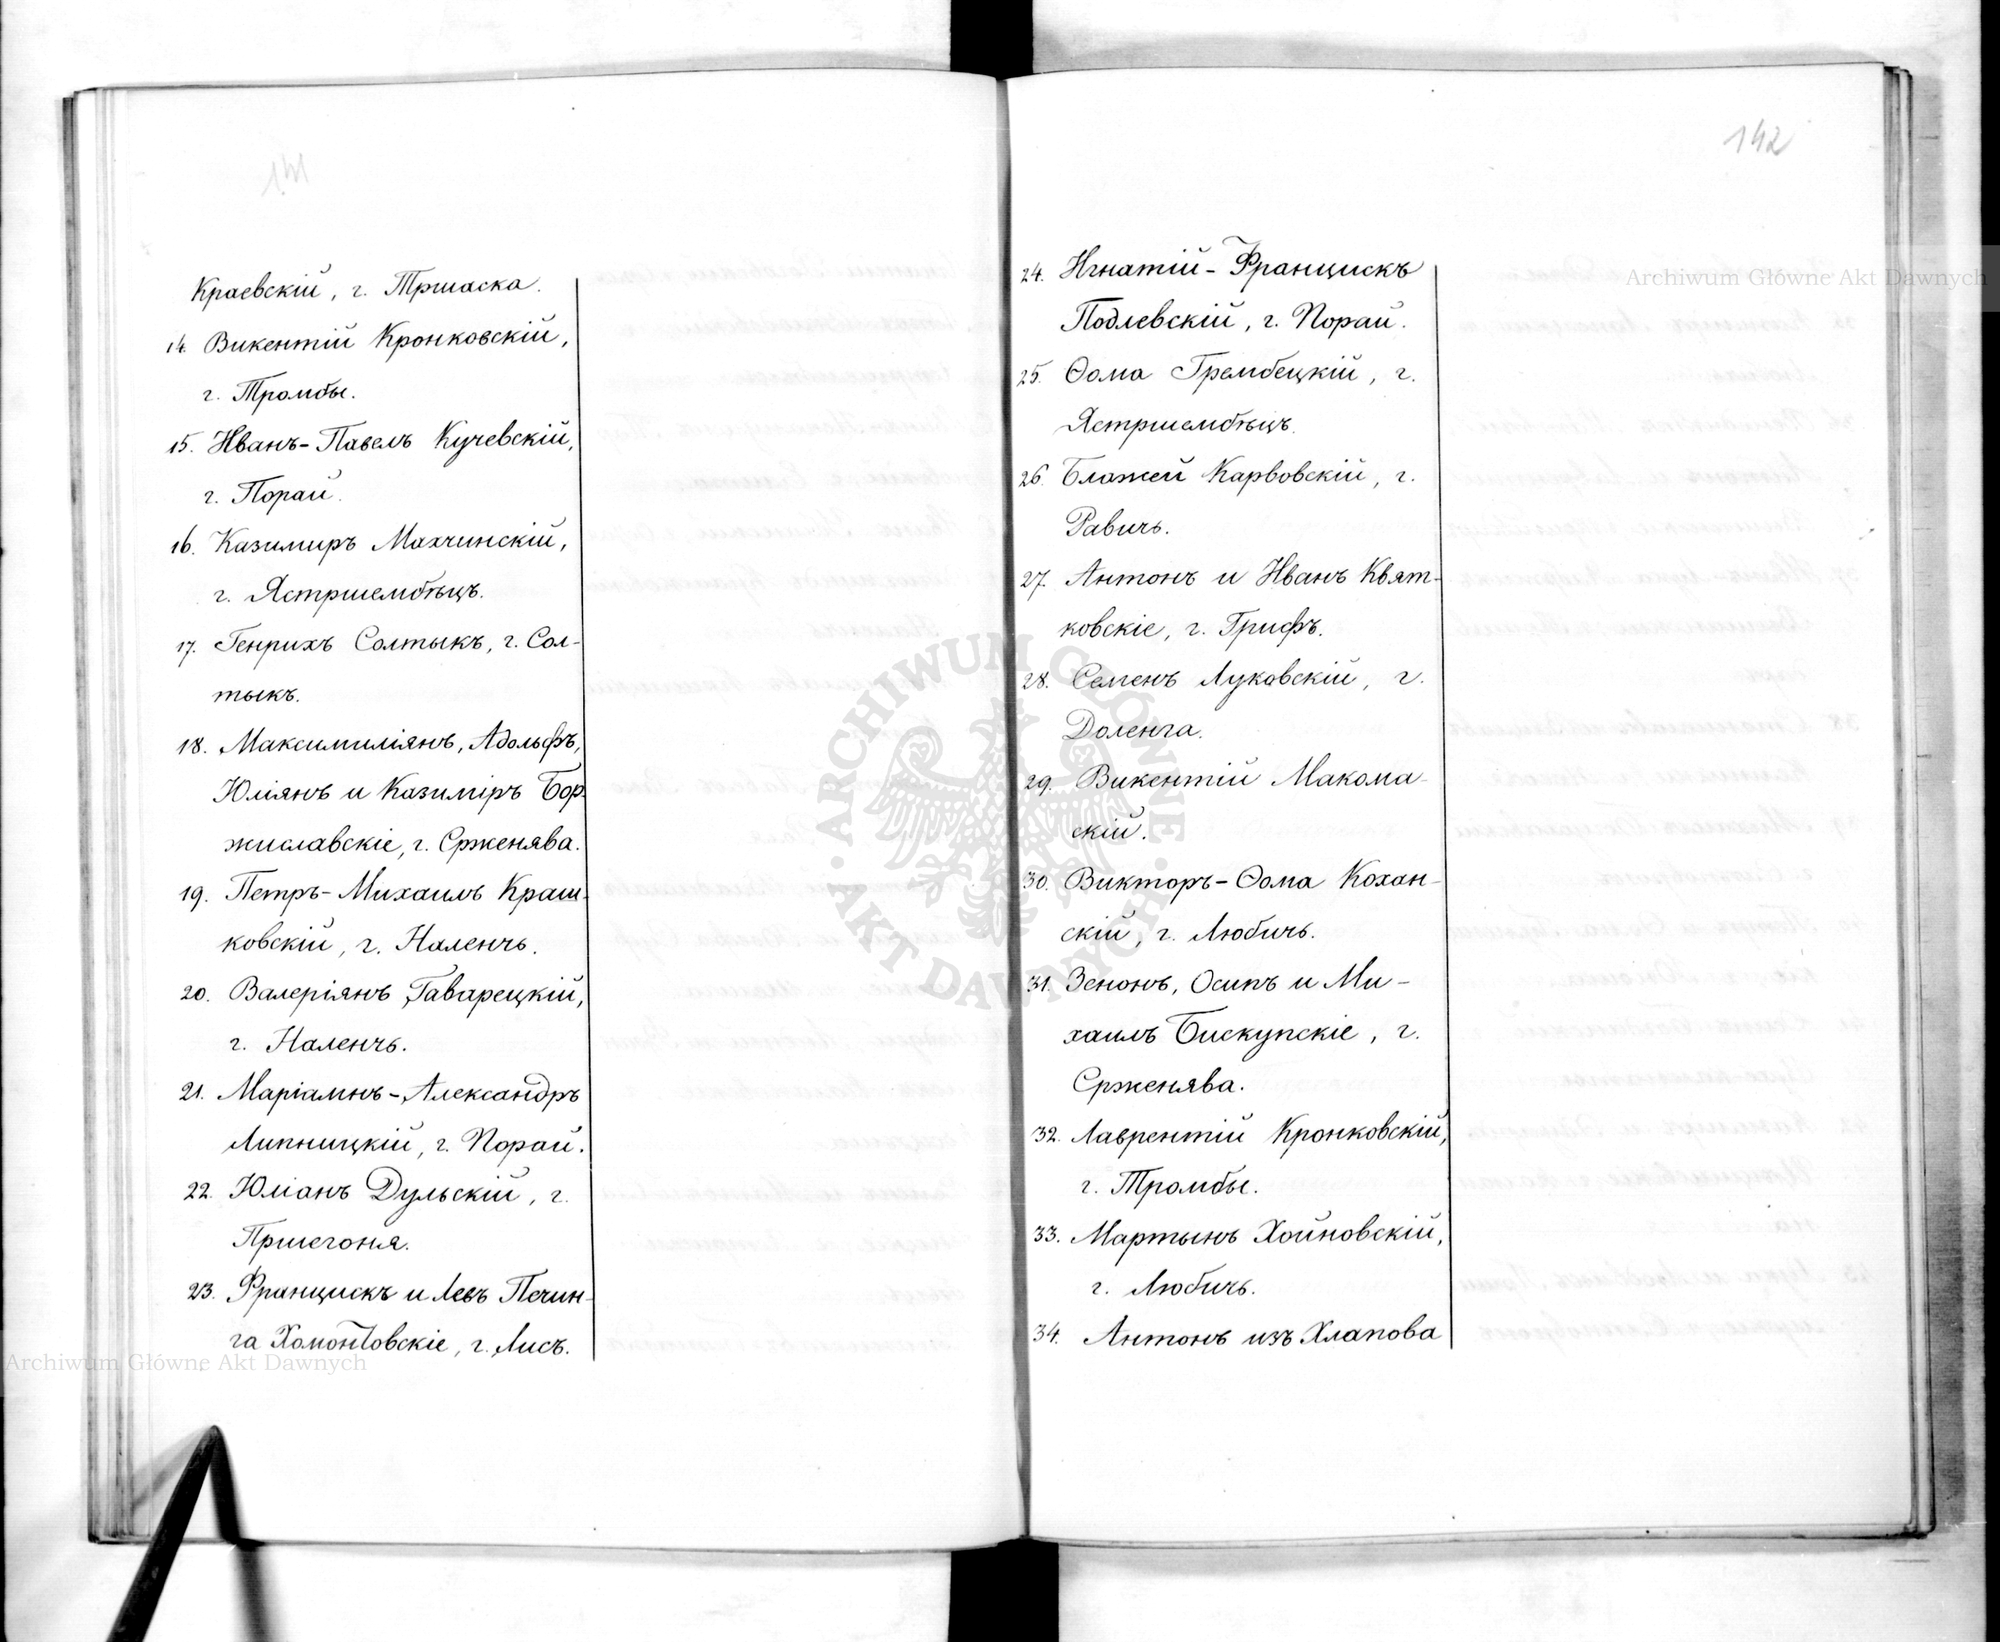 141
Краевскій, г. Тршаска.
14. Викентій Кронковскій,
г. Тромбы.
15. Иванъ-Павелъ Кучевскій,
г. Порай.
16. Казимиръ Махчинскій,
г. Ястршембѣцъ.
17. Генрихъ Солтыкъ, г. Сол-
тыкъ.
18. Максимиліянъ, Адольфъ,
Юліянъ и Казиміръ Бор-
жиславскіе, г. Срженява.
19. Петръ-Михаилъ Краш-
ковскій, г. Наленчъ.
20. Валеріянъ Гаварецкій,
г. Наленчъ.
21. Маріамнъ-Александръ
Липницкій, г. Порай.
22. Юліанъ Дульскій, г.
Пршегоня.
23. Францискъ и Левъ Печин-
га Хомонтовскіе, г. Лисъ.
142
24. Игнатій-Францискъ
Подлевскій, г. Порай.
25. Ѳома Грембецкій, г.
Ястршембѣцъ.
26. Блажей Карвовскій, г.
Равичъ.
27. Антонъ и Иванъ Квят-
ковскіе, г. Грифъ.
28. Семенъ Луковскій, г.
Доленга.
29. Викентій Макома-
скій.
30. Викторъ-Ѳома Кохан-
скій, г. Любичъ.
31. Зенонъ, Осипъ и Ми-
хаилъ Бискупскіе, г.
Срженява.
32. Лаврентій Кронковскій,
г. Тромбы.
33. Мартынъ Хойновскій,
г. Любичъ.
34. Антонъ изъ Хлапова
Archiwum Główne Akt Dawnych
Archiwum Główne Akt Dawnych
ARCHIWUM GŁÓWNE AKT DAWNYCH